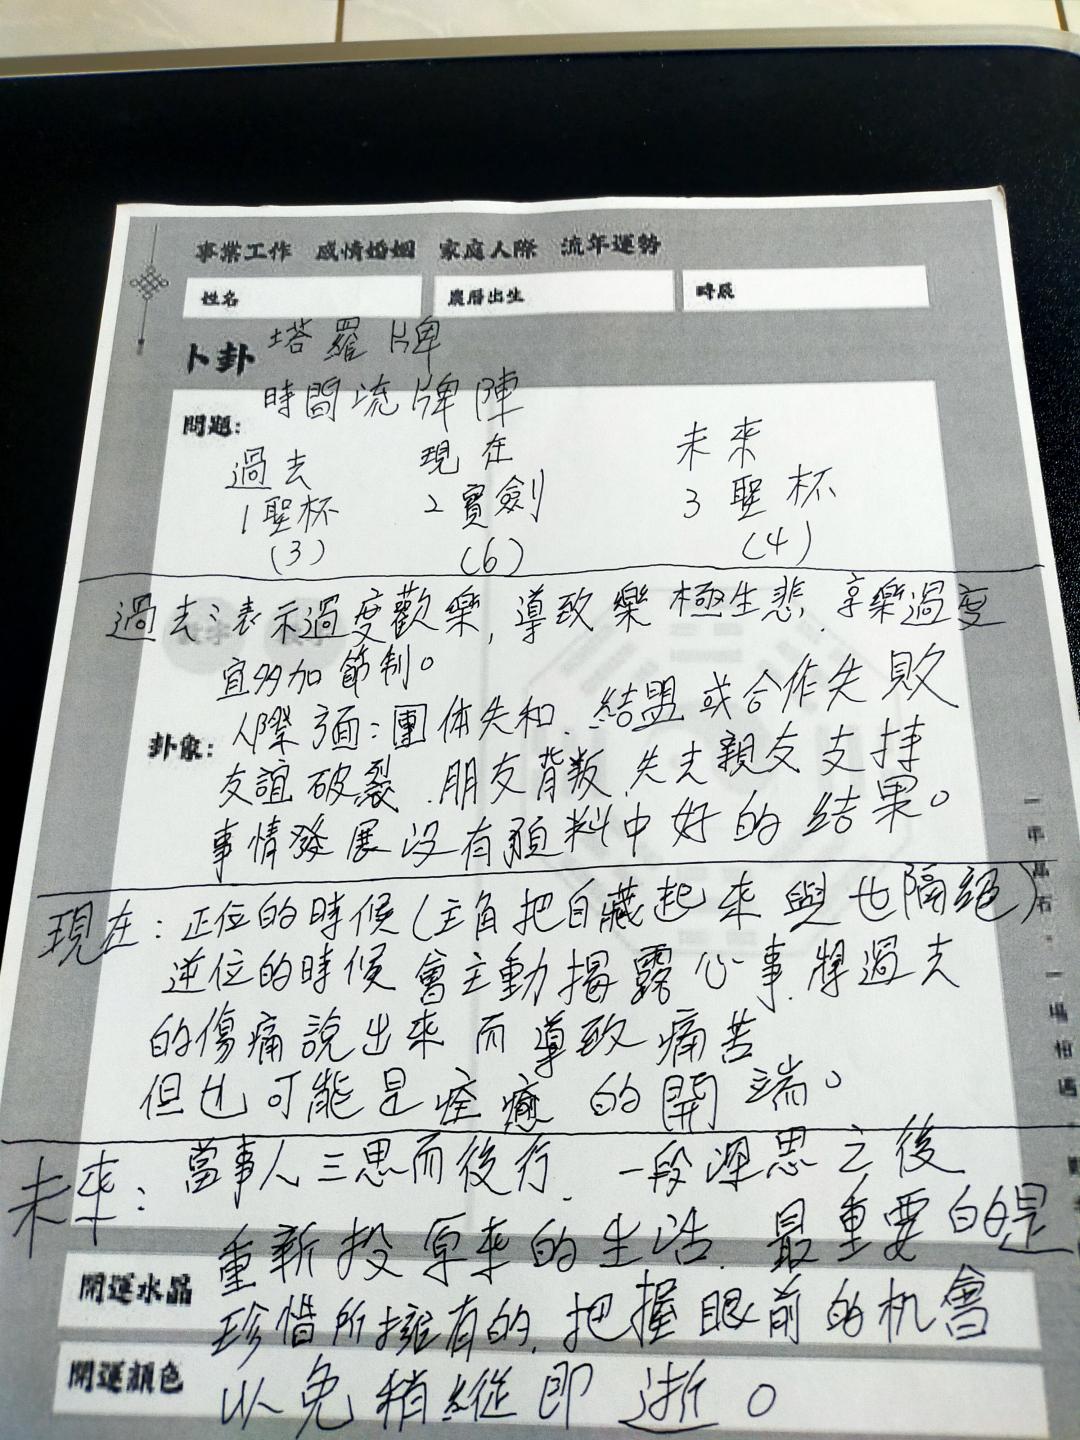 事業工作 感情婚姻 家庭人際 流年運勢
姓名 農曆出生 時辰
卜卦 塔羅牌
時間流牌陣
問題:
過去 現在 未來
1聖杯 2寶劍 3聖杯
(3) (6) (4)
過去:表示過度歡樂,導致樂極生悲、享樂過度
宜多加節制。
卦象: 人際方面:團体失和、結盟或合作失敗
友誼破裂、朋友背叛、失去親友支持
事情發展沒有預料中好的結果。
現在:正位的時候(主角把自藏起來與世隔絕)
逆位的時候會主動揭露心事、將過去
的傷痛說出來而導致痛苦
但也可能是痊癒的開端。
未來:當事人三思而後行、一段深思之後
重新投原來的生活、最重要的是
開運水晶 珍惜所擁有的、把握眼前的机會
開運顏色 以免稍縱即逝。